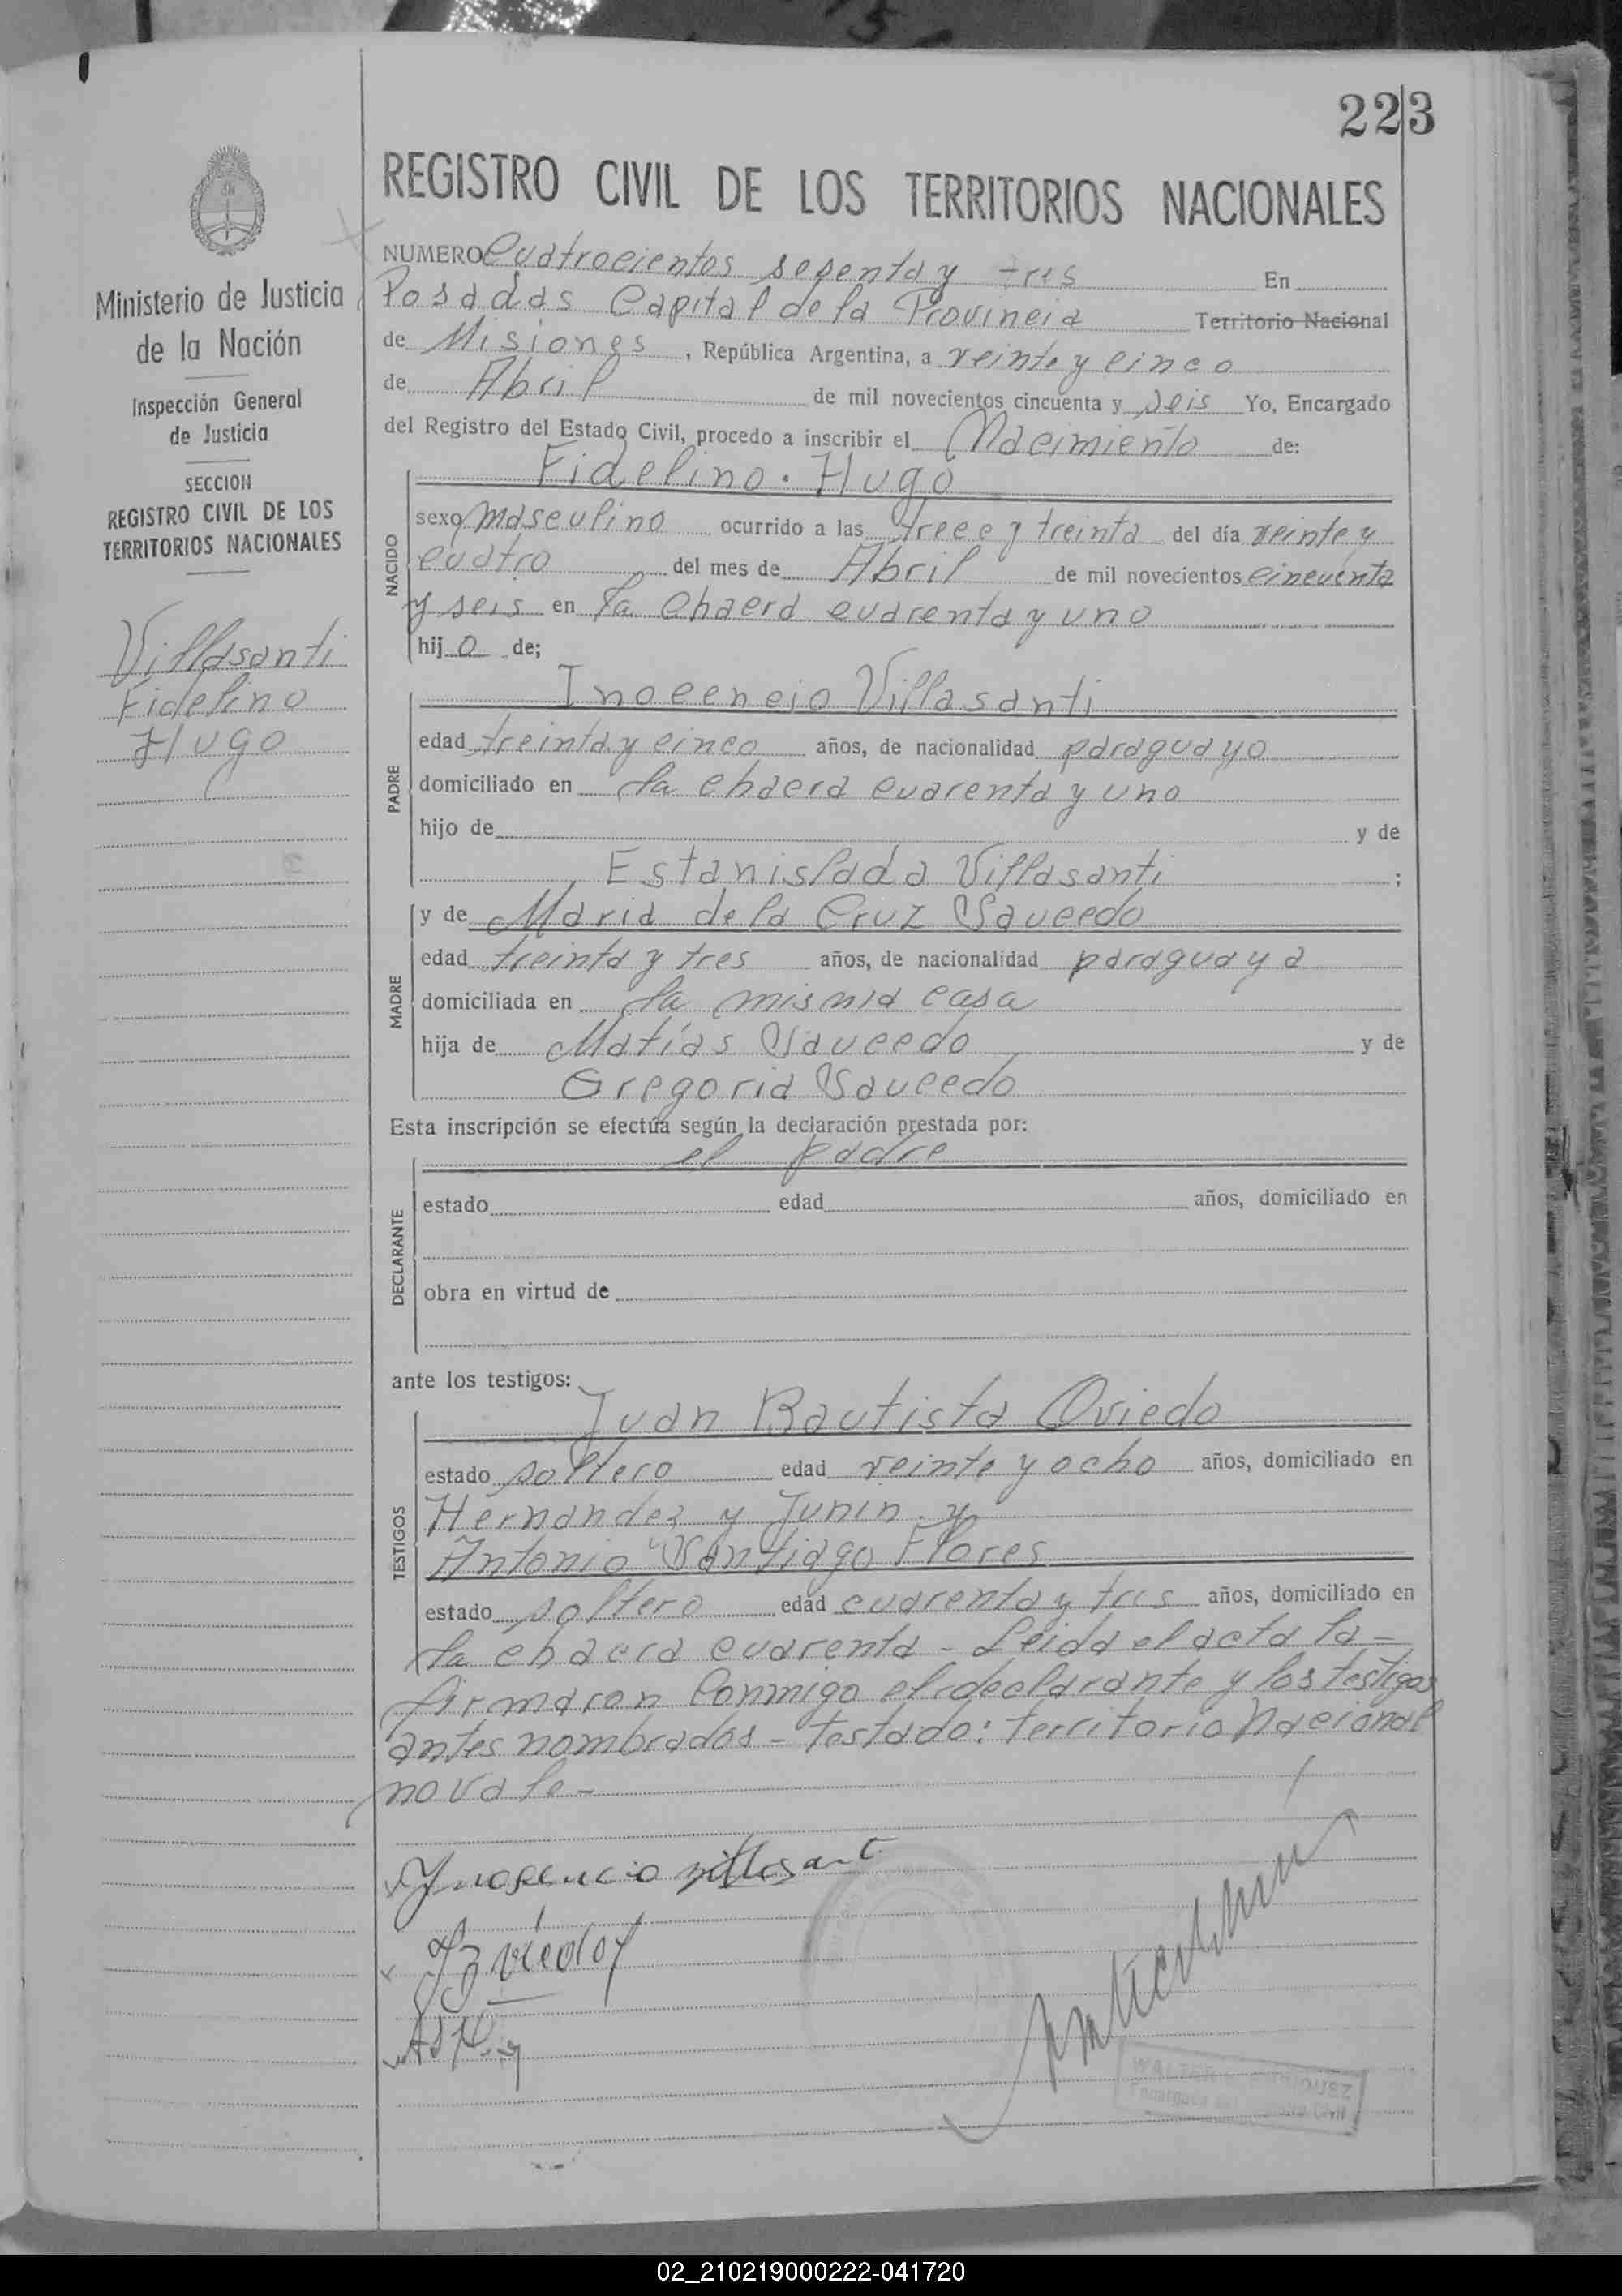 223
REGISTRO CIVIL DE LOS TERRITORIOS NACIONALES
Ministerio de Justicia
de la Nación
Inspección General
de Justicia
SECCION
REGISTRO CIVIL DE LOS
TERRITORIOS NACIONALES
Villasanti
Fidelino
Hugo
NUMERO Cuatrocientos setenta y tres En
Posadas Capital de la Provincia Territorio Nacional
de Misiones, República Argentina, a veinte y cinco
de Abril de mil novecientos cincuenta y seis Yo, Encargado
del Registro del Estado Civil, procedo a inscribir el Nacimiento de:
Fidelino Hugo
NACIDO
sexo masculino ocurrido a las trece y treinta del día veinte y
cuatro del mes de Abril de mil novecientos cincuenta
y seis en la chacra cuarenta y uno
hijo de;
Inocencio Villasanti
PADRE
edad treinta y cinco años, de nacionalidad paraguayo
domiciliado en la chacra cuarenta y uno
hijo de y de
Estanislada Villasanti ;
y de Maria de la Cruz Saucedo
MADRE
edad treinta y tres años, de nacionalidad paraguaya
domiciliada en la misma casa
hija de Matías Saucedo y de
Gregoria Saucedo
Esta inscripción se efectúa según la declaración prestada por:
el padre
DECLARANTE
estado edad años, domiciliado en
obra en virtud de
ante los testigos:
Juan Bautista Oviedo
TESTIGOS
estado soltero edad veinte y ocho años, domiciliado en
Hernandez y Junin y
Antonio Santiago Flores
estado soltero edad cuarenta y tres años, domiciliado en
la chacra cuarenta - Leida el acta la-
firmaron Conmigo el declarante y los testigos
antes nombrados - Testado: Territorio Nacional
no vale-
Ynosencio villasant
02_210219000222-041720